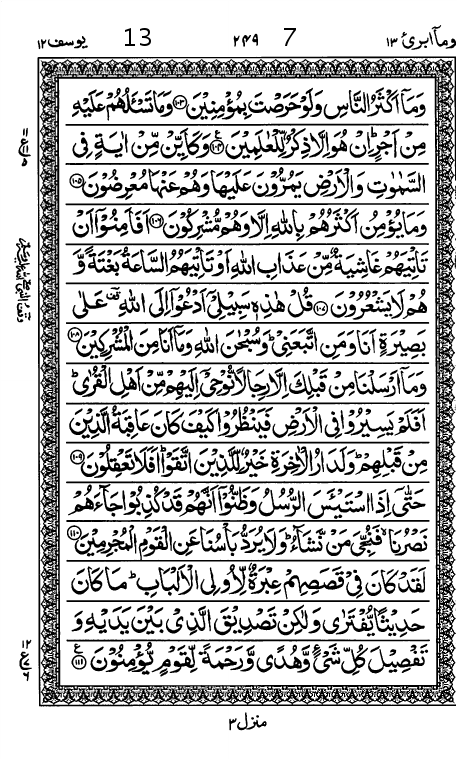 وما ابرئ ١٣ 7 ٢٤٩ 13 يوسف ١٢
وَمَاۤ اَكْثَرُ النَّاسِ وَلَوْ حَرَصْتَ بِمُؤْمِنِيْنَ ﴿١٠٣﴾ وَمَا تَسْـَٔلُهُمْ عَلَيْهِ
مِنْ اَجْرٍ ؕ اِنْ هُوَ اِلَّا ذِكْرٌ لِّلْعٰلَمِيْنَ ﴿١٠٤﴾ ع وَكَاَيِّنْ مِّنْ اٰيَةٍ فِى
السَّمٰوٰتِ وَالْاَرْضِ يَمُرُّوْنَ عَلَيْهَا وَهُمْ عَنْهَا مُعْرِضُوْنَ ﴿١٠٥﴾
وَمَا يُؤْمِنُ اَكْثَرُهُمْ بِاللّٰهِ اِلَّا وَهُمْ مُّشْرِكُوْنَ ﴿١٠٦﴾ اَفَاَمِنُوْۤا اَنْ
تَاْتِيَهُمْ غَاشِيَةٌ مِّنْ عَذَابِ اللّٰهِ اَوْ تَاْتِيَهُمُ السَّاعَةُ بَغْتَةً وَّ
هُمْ لَا يَشْعُرُوْنَ ﴿١٠٧﴾ قُلْ هٰذِهٖ سَبِيْلِىْۤ اَدْعُوْۤا اِلَى اللّٰهِ ؔ عَلٰى
بَصِيْرَةٍ اَنَا وَمَنِ اتَّبَعَنِىْ ؕ وَسُبْحٰنَ اللّٰهِ وَمَاۤ اَنَا مِنَ الْمُشْرِكِيْنَ ﴿١٠٨﴾
وَمَاۤ اَرْسَلْنَا مِنْ قَبْلِكَ اِلَّا رِجَالًا نُّوْحِىْۤ اِلَيْهِمْ مِّنْ اَهْلِ الْقُرٰى ؕ
اَفَلَمْ يَسِيْرُوْا فِى الْاَرْضِ فَيَنْظُرُوْا كَيْفَ كَانَ عَاقِبَةُ الَّذِيْنَ
مِنْ قَبْلِهِمْ ؕ وَلَدَارُ الْاٰخِرَةِ خَيْرٌ لِّلَّذِيْنَ اتَّقَوْا ؕ اَفَلَا تَعْقِلُوْنَ ﴿١٠٩﴾
حَتّٰۤى اِذَا اسْتَيْـَٔسَ الرُّسُلُ وَظَنُّوْۤا اَنَّهُمْ قَدْ كُذِبُوْا جَآءَهُمْ
نَصْرُنَا ۙ فَنُجِّىَ مَنْ نَّشَآءُ ؕ وَلَا يُرَدُّ بَاْسُنَا عَنِ الْقَوْمِ الْمُجْرِمِيْنَ ﴿١١٠﴾
لَقَدْ كَانَ فِىْ قَصَصِهِمْ عِبْرَةٌ لِّاُولِى الْاَلْبَابِ ؕ مَا كَانَ
حَدِيْثًا يُّفْتَرٰى وَلٰكِنْ تَصْدِيْقَ الَّذِىْ بَيْنَ يَدَيْهِ وَ
تَفْصِيْلَ كُلِّ شَىْءٍ وَّهُدًى وَّرَحْمَةً لِّقَوْمٍ يُّؤْمِنُوْنَ ﴿١١١﴾ ع
منزل ٣